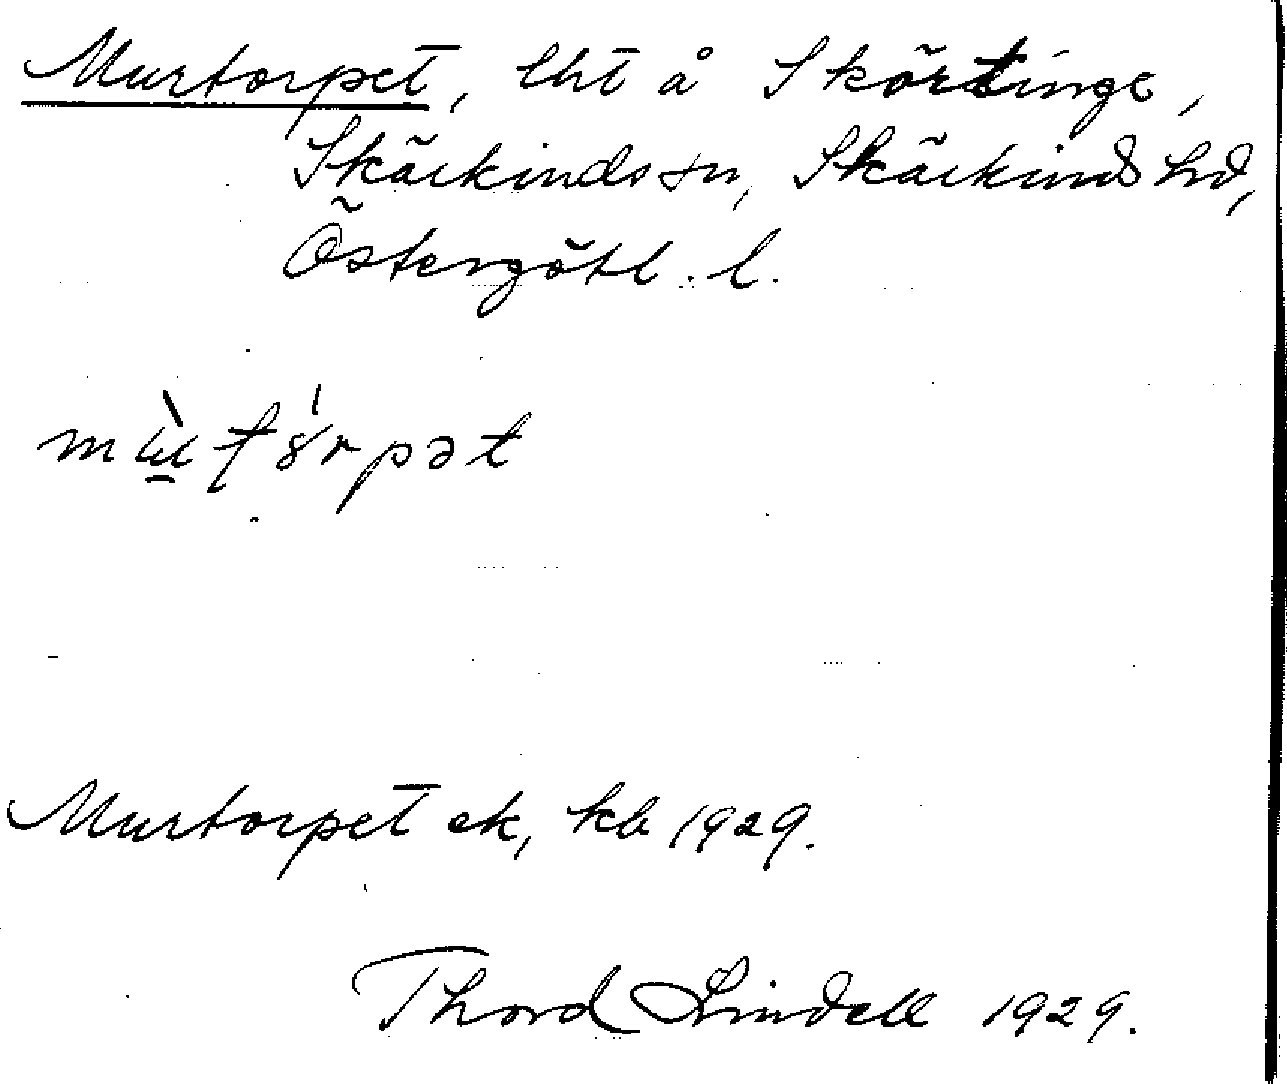 Murtorpet, lht å Skörtinge,
Skärkinds sn, Skärkinds hd,
Östergötl. l.
Murtorpet ek, kb 1929.
Thord Lindell 1929.